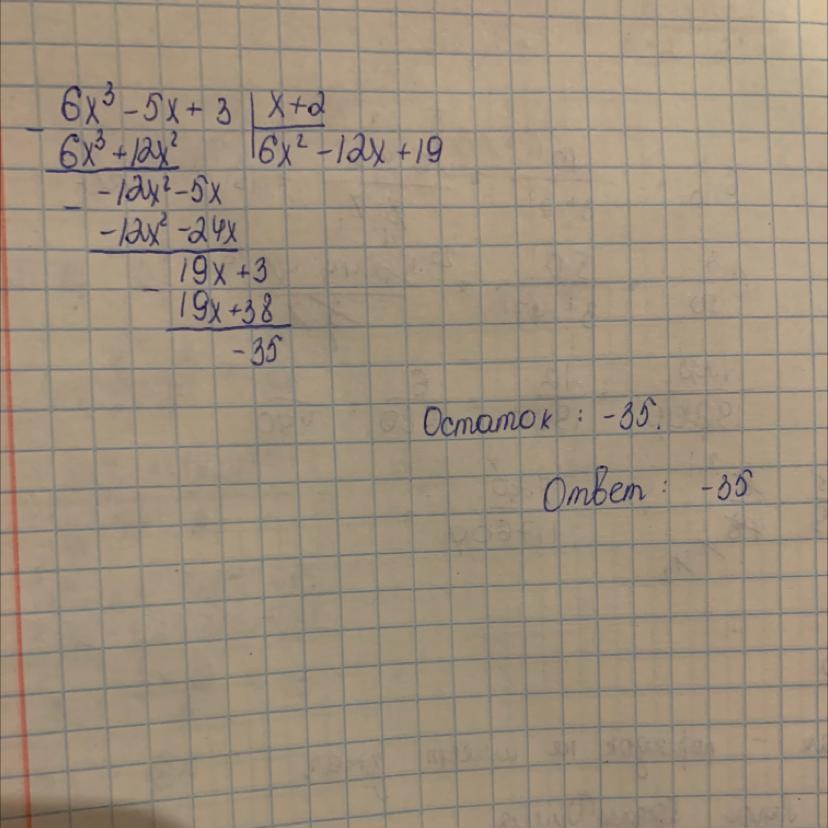 6x³ - 5x + 3 | x + 2
- 6x³ + 12x² | 6x² - 12x + 19
- -12x² - 5x
-12x² - 24x
- 19x + 3
19x + 38
-35
Остаток : -35.
Ответ : -35